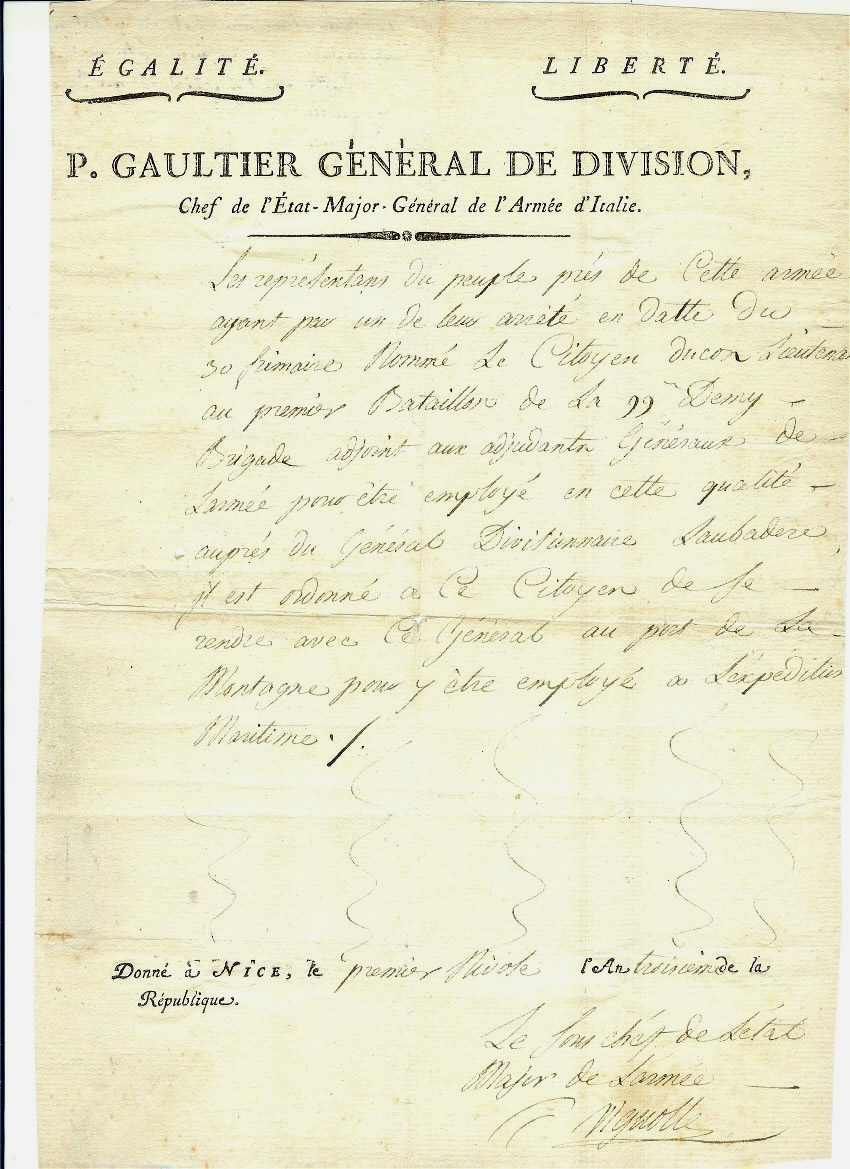 ÉGALITÉ. LIBERTÉ.
P. GAULTIER GÉNÉRAL DE DIVISION,
Chef de l'État-Major-Général de l'Armée d'Italie.
Les représentans du peuple près de Cette armée
ayant par un de leur arrêté en datte du
30 frimaire Nommé Le Citoyen ducon Lieutenan
au premier Bataillon de La 99e Demy —
Brigade adjoint aux adjudants Généraux de —
Larmée pour être employé en cette qualité —
auprès du Général Divisionnaire Laubadere,
il est ordonné a Ce Citoyen de Se —
rendre avec Ce Général au port de La —
Montagne pour y être employé a L'expédition
Maritime ./.
Donné à NICE, le premier Nivose l'An troisième de la
République.
Le Sous chef de Létat
Major de Larmée —
Vignolle